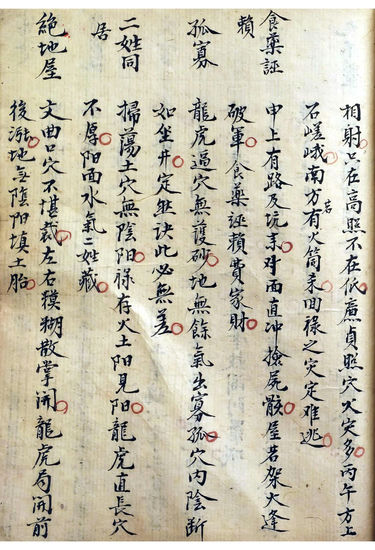 相射只在高照不在低廉貞照穴火灾多丙午方上
石嵯峨南方若有火筒來回祿之灾定难逃
食藥誣
賴
申上有路及坑來对面直冲撿屍骸屋若架火逢
破軍食藥誣賴費家財
孤寡
龍虎逼穴無護砂地無餘氣出寡孤穴内陰斷
如坐井定訣此必無差
二姓同
居
掃蕩土穴無陰陽祿存火土陽見陽龍虎直長穴
不厚阳面水氣二姓藏
絕地屋
文曲口穴不堪裁左右模糊散掌開龍虎局開前
後漲地無陰阳填土胎